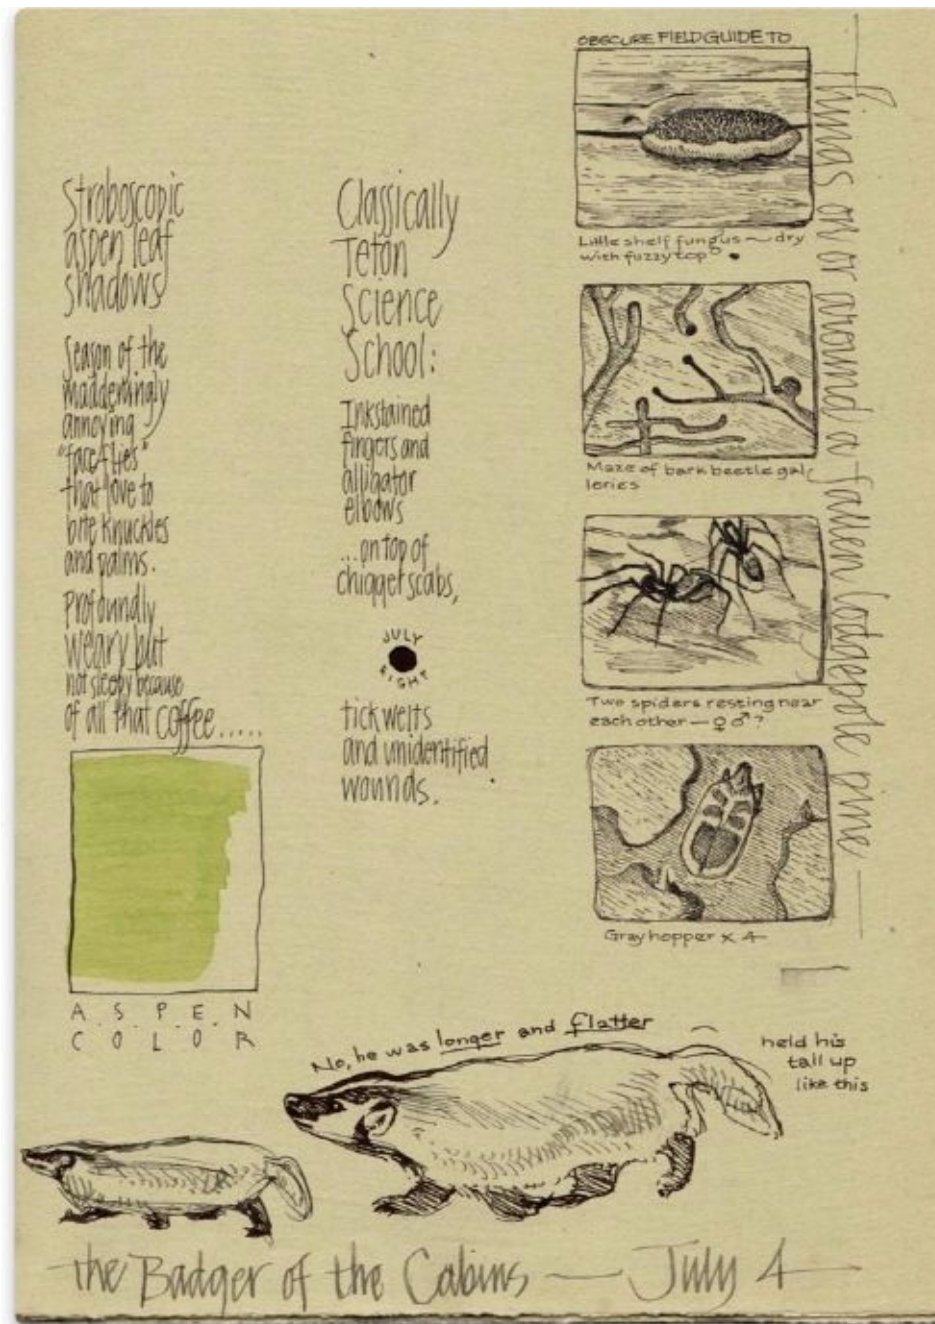 Stroboscopic
aspen leaf
shadows
Season of the
maddeningly
annoying
"face flies"
that love to
bite knuckles
and palms.
Profoundly
weary but
not sleepy because
of all that coffee.....
A.S.P.E.N
C.O.L.O.R
Classically
Teton
Science
School:
Inkstained
fingers and
alligator
elbows
...on top of
chigger scabs,
JULY
EIGHT
tick welts
and unidentified
wounds.
OBSCURE FIELD GUIDE TO
Things on or around a fallen lodgepole pine
Little shelf fungus ~ dry
with fuzzy top
Maze of bark beetle gal-
leries
Two spiders resting near
each other — ♀ ♂?
Gray hopper x 4
No, he was longer and flatter
held his
tail up
like this
the Badger of the Cabins — July 4